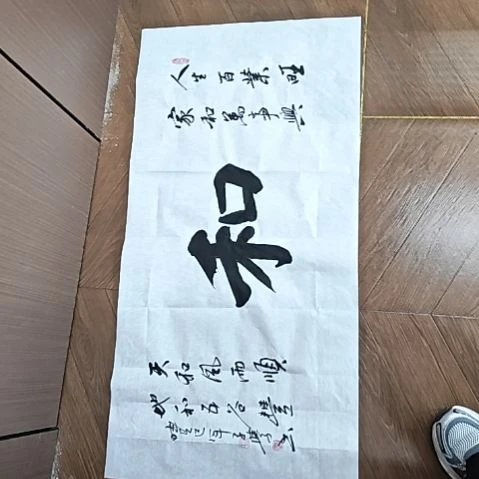 人生百業旺
家和萬事興
和
天和風雨順
地和五谷豐